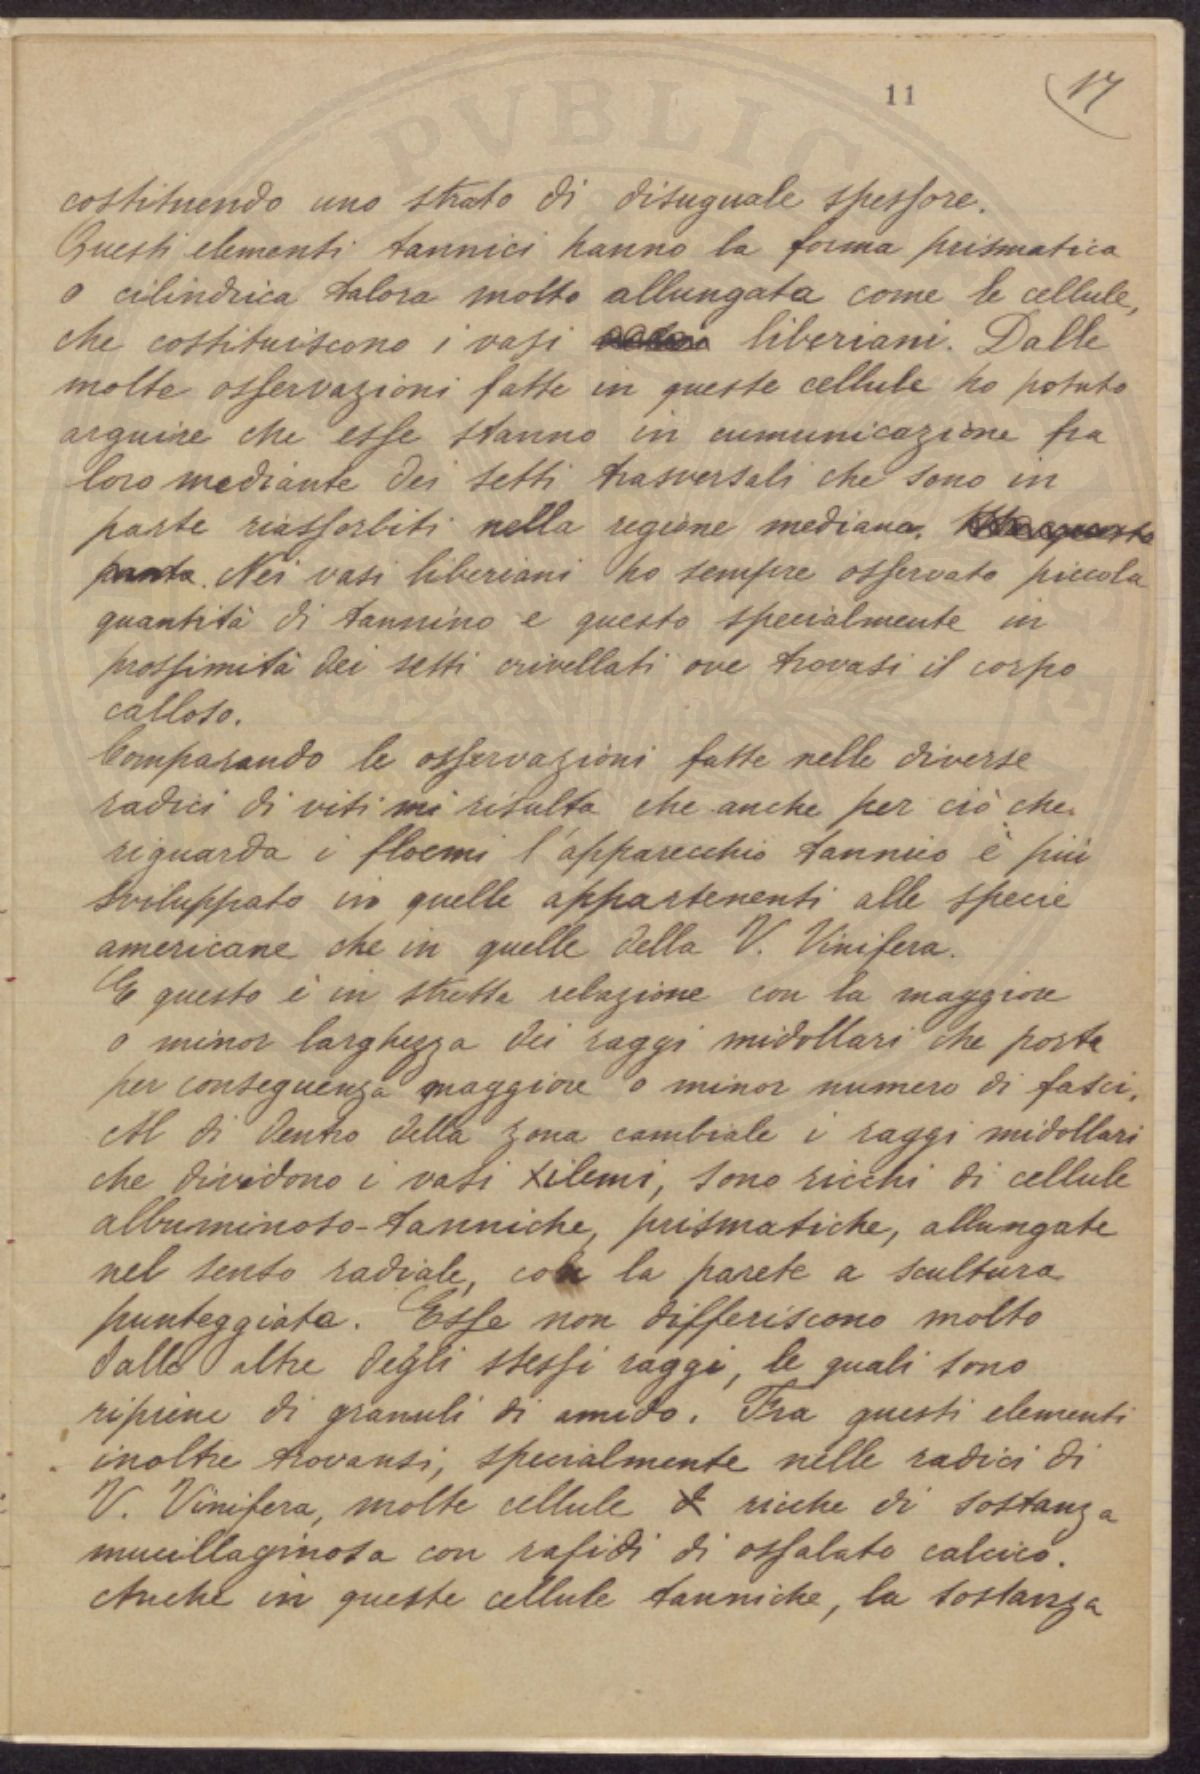 PVBLIC
11
17
costituendo uno strato di disuguale spessore.
Questi elementi tannici hanno la forma prismatica
o cilindrica talora molto allungata come le cellule,
che costituiscono i vasi liberiani. Dalle
molte osservazioni fatte in queste cellule ho potuto
arguire che esse stanno in cumunicazione fra
loro mediante dei setti trasversali che sono in
parte riassorbiti nella regione mediana.
Nei vasi liberiani ho sempre osservato piccola
quantità di tannino e questo specialmente in
prossimità dei setti crivellati ove trovasi il corpo
calloso.
Comparando le osservazioni fatte nelle diverse
radici di viti mi risulta che anche per ciò che
riguarda i floemi l'apparecchio tannico è più
sviluppato in quelle appartenenti alle specie
americane che in quelle della V. Vinifera.
E questo è in stretta relazione con la maggiore
o minor larghezza dei raggi midollari che porta
per conseguenza maggiore o minor numero di fasci.
Al di dentro della zona cambiale i raggi midollari
che dividono i vasi xilemi, sono ricchi di cellule
albuminoso-tanniche, prismatiche, allungate
nel senso radiale, con la parete a scultura
punteggiata. Esse non differiscono molto
dalle altre degli stessi raggi, le quali sono
ripiene di granuli di amido. Fra questi elementi
inoltre trovansi, specialmente nelle radici di
V. Vinifera, molte cellule ricche di sostanza
mucillaginosa con rafidi di ossalato calcico.
Anche in queste cellule tanniche, la sostanza